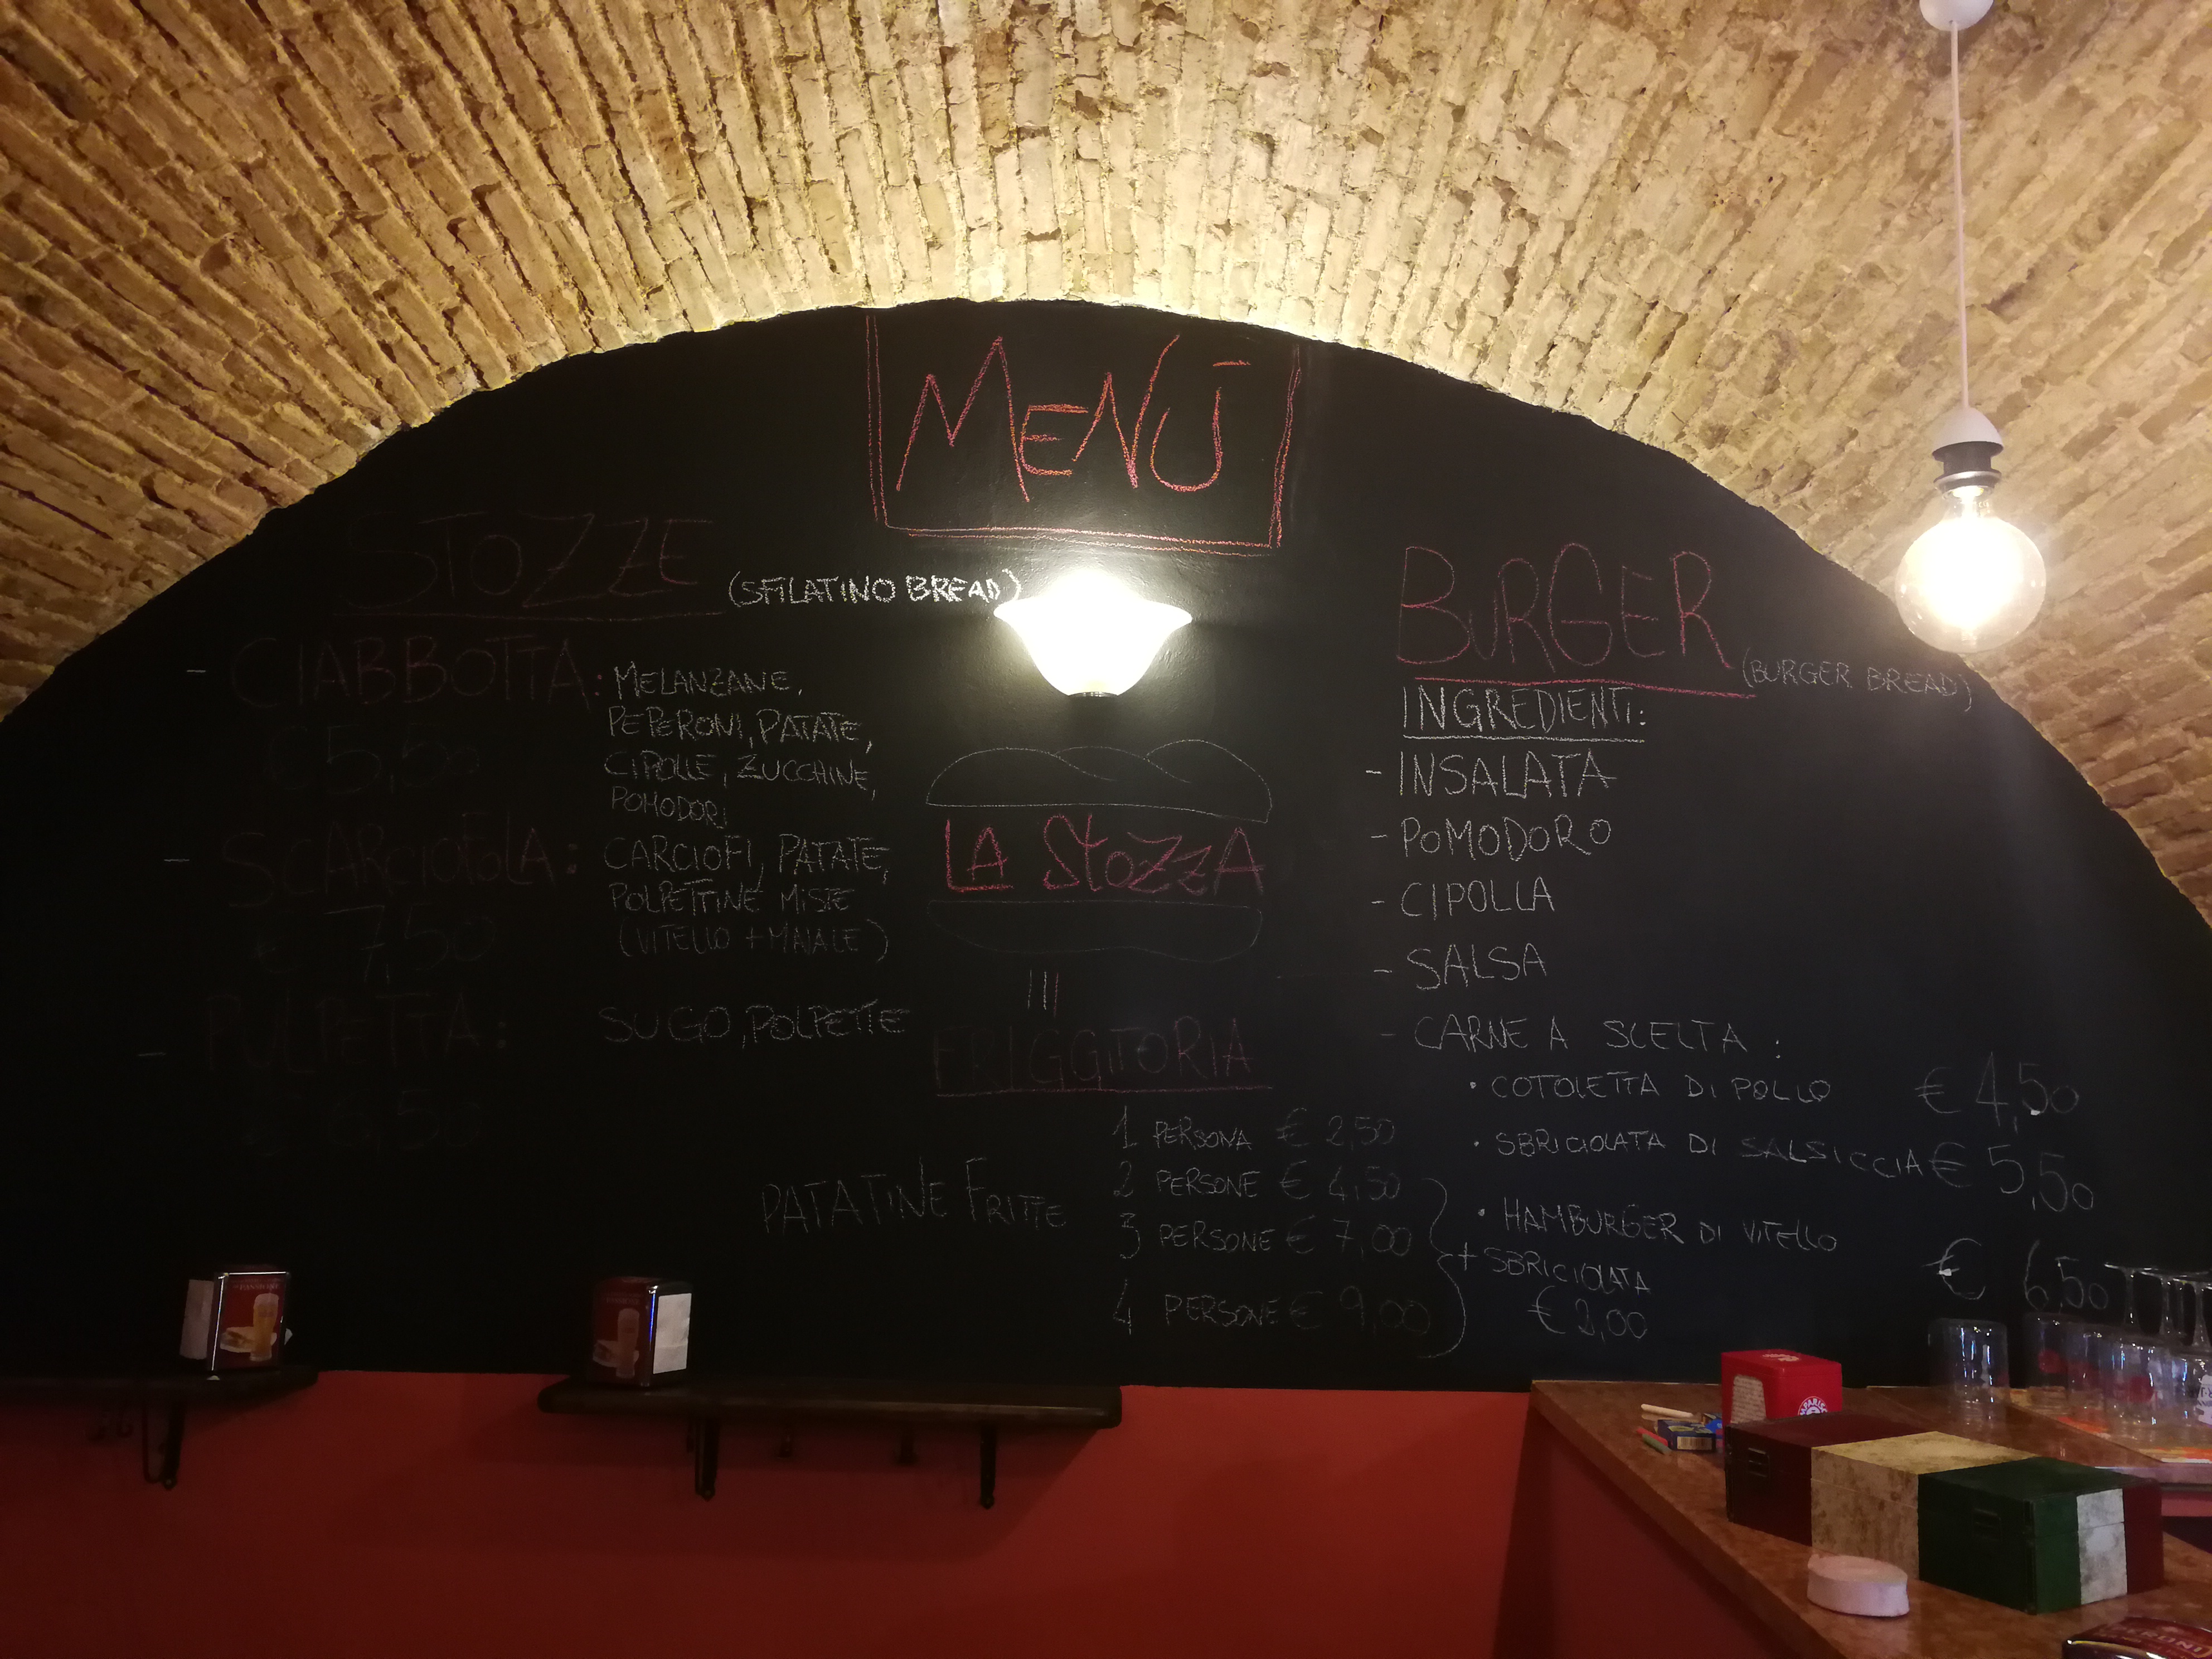 MENÚ
STOZZE (SFILATINO BREAD)
- CIABBOTTA: MELANZANE,
PEPERONI, PATATE,
CIPOLLE, ZUCCHINE,
POMODORI
€ 5,50
- SCARCIOFOLA: CARCIOFI, PATATE,
POLPETTINE MISTE
(VITELLO + MAIALE)
€ 7,50
- PULPETTA: SUGO, POLPETTE
€ 6,50
LA STOZZA
FRIGGITORIA
PATATINE FRITTE
1 PERSONA € 2,50
2 PERSONE € 4,50
3 PERSONE € 7,00
4 PERSONE € 9,00
+ SBRICIOLATA
€ 2,00
BURGER (BURGER BREAD)
INGREDIENTI:
- INSALATA
- POMODORO
- CIPOLLA
- SALSA
- CARNE A SCELTA:
• COTOLETTA DI POLLO € 4,50
• SBRICIOLATA DI SALSICCIA € 5,50
• HAMBURGER DI VITELLO
€ 6,50